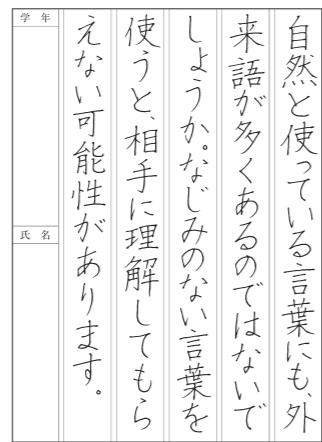 自然と使っている言葉にも、外
来語が多くあるのではないで
しょうか。なじみのない言葉を
使うと、相手に理解してもら
えない可能性があります。
学年
氏名